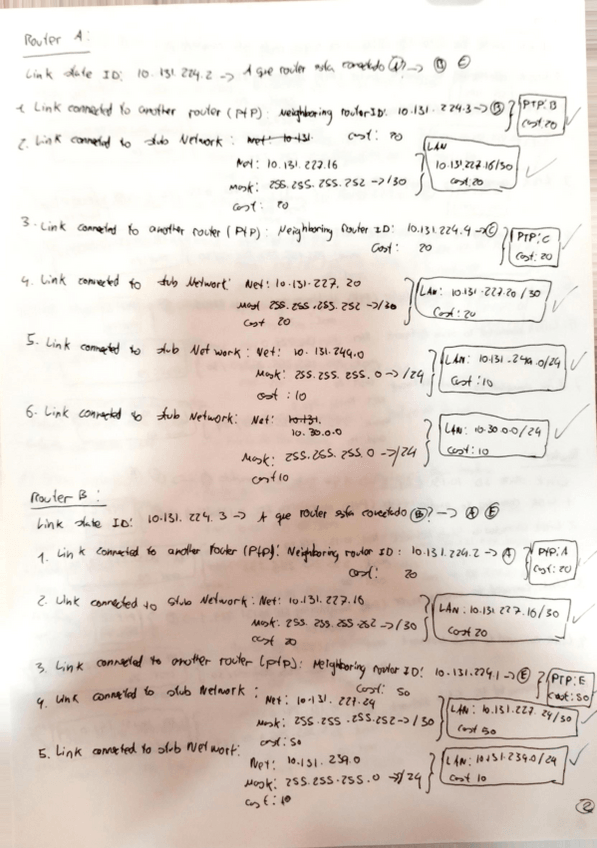 Router A:
Link state ID: 10.131.224.2 -> A que router esta conectado (A) -> (B) (C)
1. Link connected to another router (PtP): Neighboring router ID: 10.131.224.3 -> (B) } PTP: B
cost: 20 cost: 20
2. Link connected to stub Network: Net: 10.131
Net: 10.131.227.16 } LAN
Mask: 255.255.255.252 -> /30 10.131.227.16/30
cost: 20 cost: 20
3. Link connected to another router (PtP): Neighboring Router ID: 10.131.224.4 -> (C) } PTP: C
Cost: 20 Cost: 20
4. Link connected to stub Network: Net: 10.131.227.20 } LAN: 10.131.227.20/30
Mask 255.255.255.252 -> /30 Cost: 20
Cost 20
5. Link connected to stub Network: Net: 10.131.249.0 } LAN: 10.131.249.0/24
Mask: 255.255.255.0 -> /24 Cost: 10
cost: 10
6. Link connected to stub Network: Net: 10.131.
10.30.0.0 } LAN: 10.30.0.0/24
Mask: 255.255.255.0 -> /24 Cost: 10
cost 10
Router B:
Link state ID: 10.131.224.3 -> A que router esta conectado (B)? -> (A) (E)
1. Link connected to another Router (PtP): Neighboring router ID: 10.131.224.2 -> (A) } PTP: A
Cost: 20 Cost: 20
2. Link connected to stub Network: Net: 10.131.227.16 } LAN: 10.131.227.16/30
Mask: 255.255.255.252 -> /30 Cost 20
cost 20
3. Link connected to another router (ptp): Neighboring router ID: 10.131.224.1 -> (E) } PTP: E
Cost: 50 Cost: 50
4. Link connected to stub Network: Net: 10.131.227.24 } LAN: 10.131.227.24/30
Mask: 255.255.255.252 -> /30 Cost 50
cost: 50
5. Link connected to stub Network: Net: 10.131.239.0 } LAN: 10.131.239.0/24
Mask: 255.255.255.0 -> /24 Cost 10
cost: 10
(2)